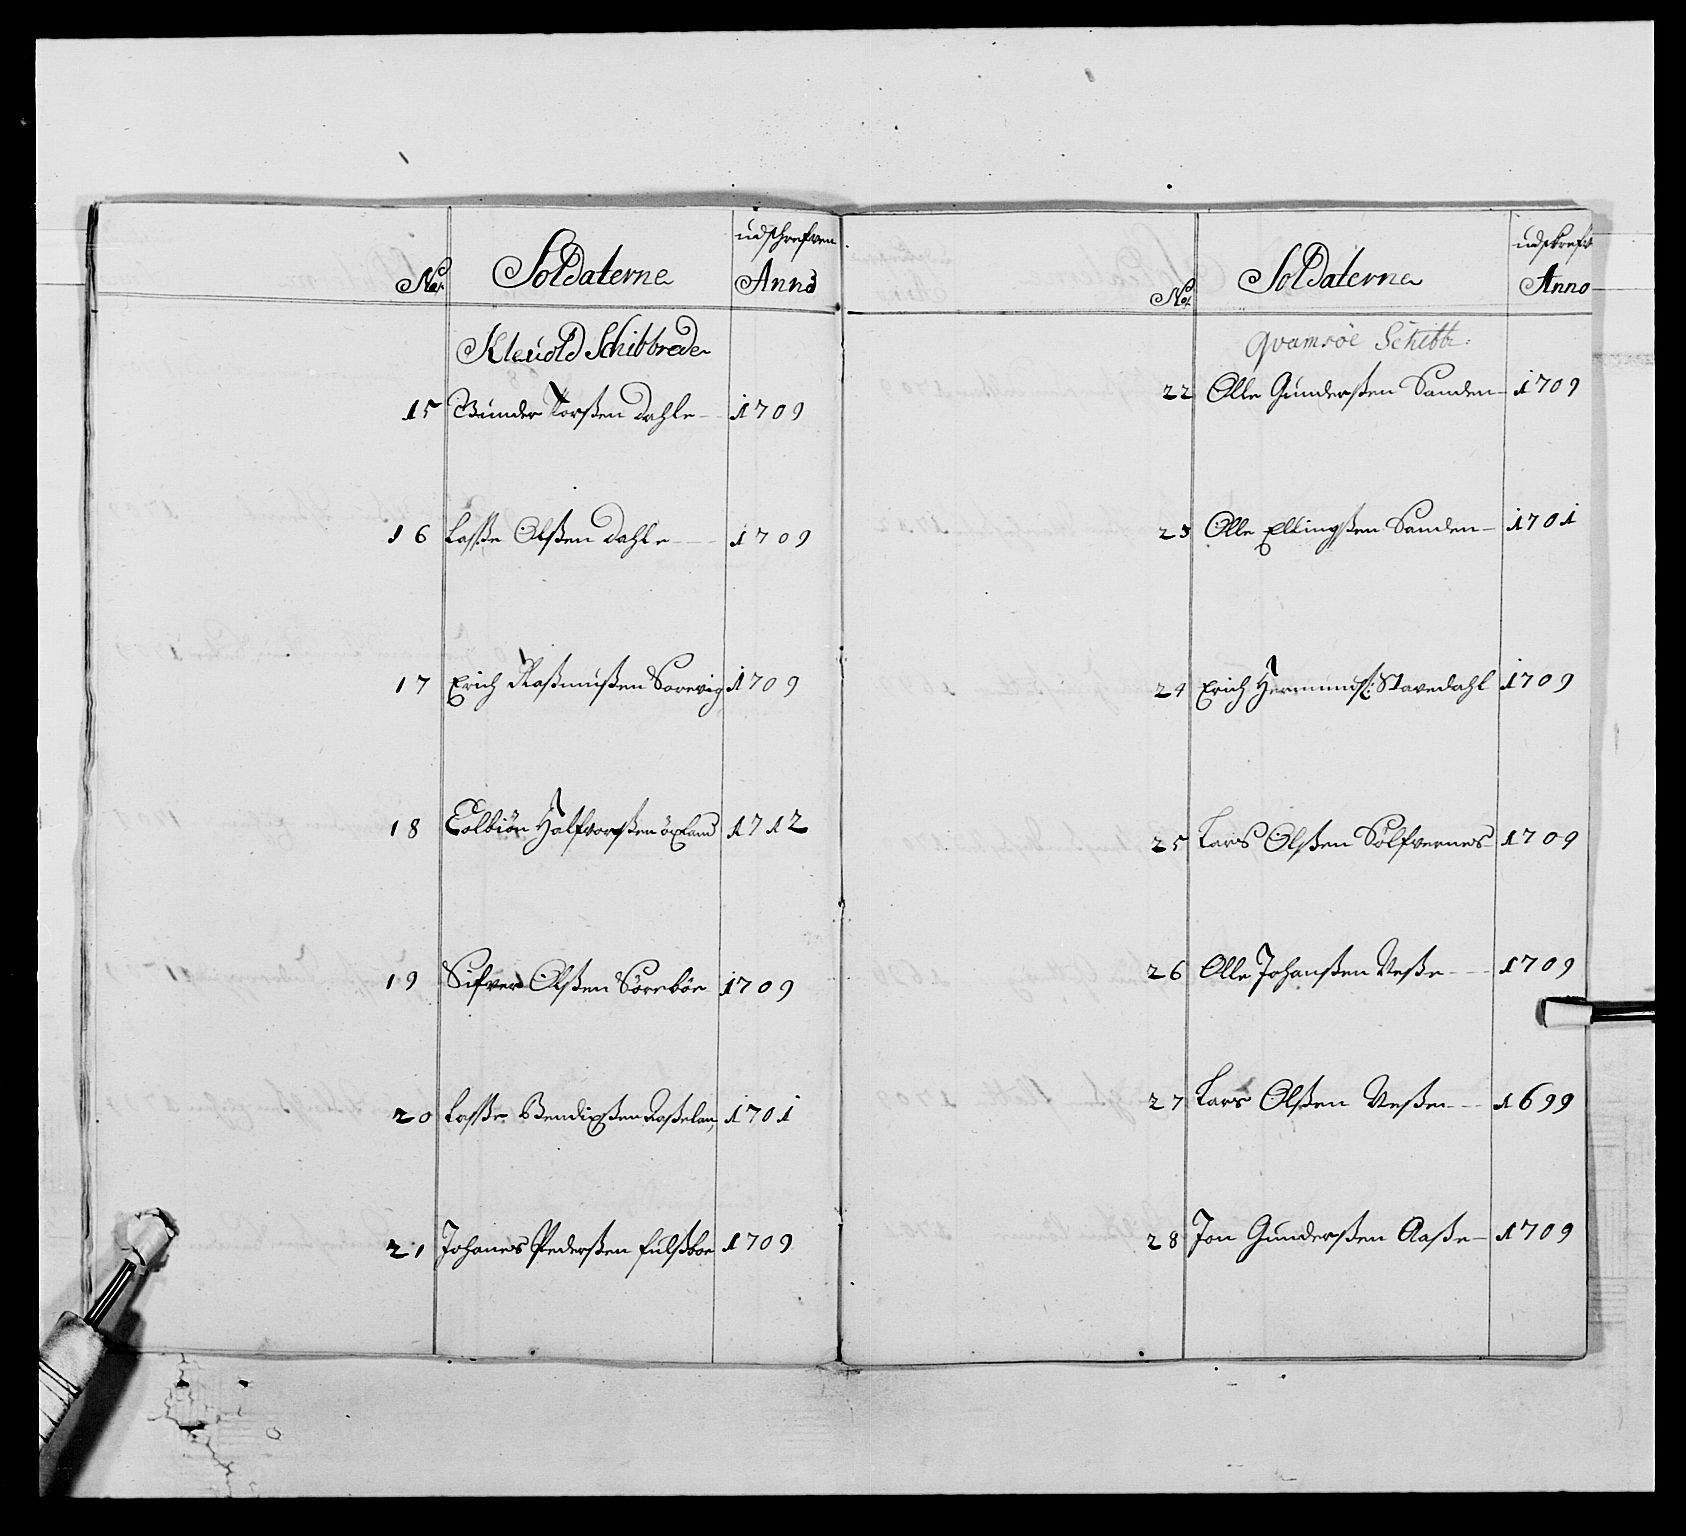 No: Soldaterne udschrefven Anno
Kleuold Schibbrede
15 Gunder Torßen Dahle 1709
16 Laße Olßen Dahle 1709
17 Erich Raßmußen Sorevig 1709
18 Colbiön Halfvorßen öxland 1712
19 Sifver Olßen Sörebön 1709
20 Laße Bendixßen 1701
21 Johanes Pederßen 1709
No: Soldaterne udskrefv Anno
Qvamsöe Schibbr:
22 Olle Gunderßen Sanden 1709
23 Olle Ellingßen Sanden 1701
24 Erich Hermundß: Stavedahl 1709
25 Lars Olßen Sölfvernes 1709
26 Olle Johanßen Neße 1709
27 Lars Olßen Neße 1699
28 Jon Gunderßen Aaße 1709